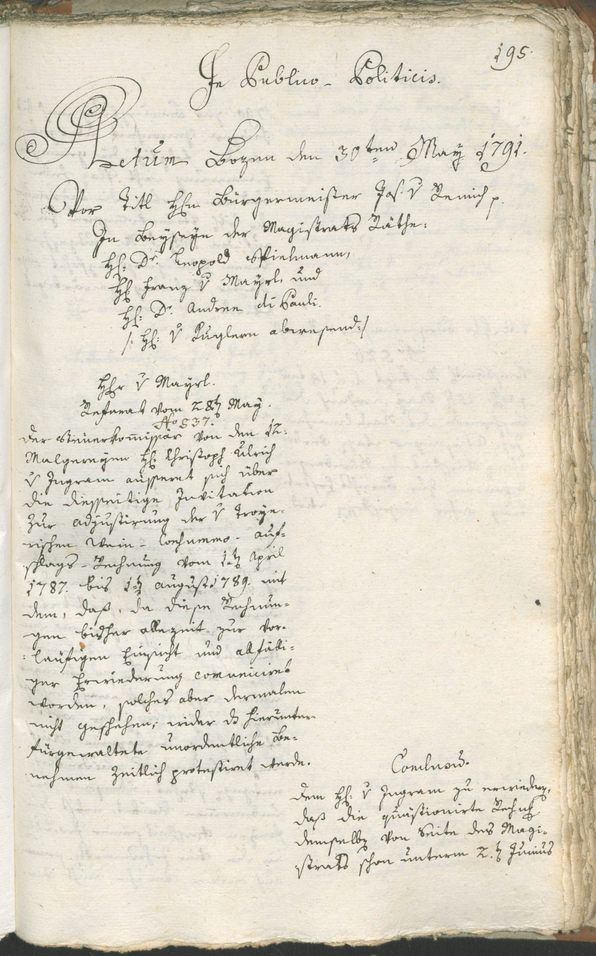 195.
In Publico-Politicis.
Actum Bozen den 30ten May 1791.
Vor Titl Hhrn Bürgermeister Jos: v Remich p
In Beyseyn der Magistrats Räthe:
Hh: Dr. Leopold
Hh: Franz v Mayrl, und
Hh: Dr. Andree di Pauli.
/: Hh: v Kuglern abwesend :/
Hhr v Mayrl.
Referat vom 28t May.
No 537.
Der Steuerkommissar von den 12.
Malgereyen Hh: Christoph Ulrich
v Ingram äusseret sich über
die diesseitige Invitation
zur Adjustirung der v Troye-
rischen Wein-Consummo-Auf-
schlags-Rechnung vom 1t April
1787. bis 1t August 1789. mit
dem, daß, da diese Rechnun-
gen bisher allezeit zur vor-
läufigen Einsicht und allfälli-
ger Erwiederung communiciret
worden, solches aber dermalen
nicht geschehen; wider das hierunter
fürgewaltete unordentliche Be-
nehmen zeitlich protestiret werde.
Conclusum.
Dem Hh: v Ingram zu erwiedern,
daß die quästionirte Rechnung
demselben von Seite des Magi-
strats schon unterm 2.t Junius